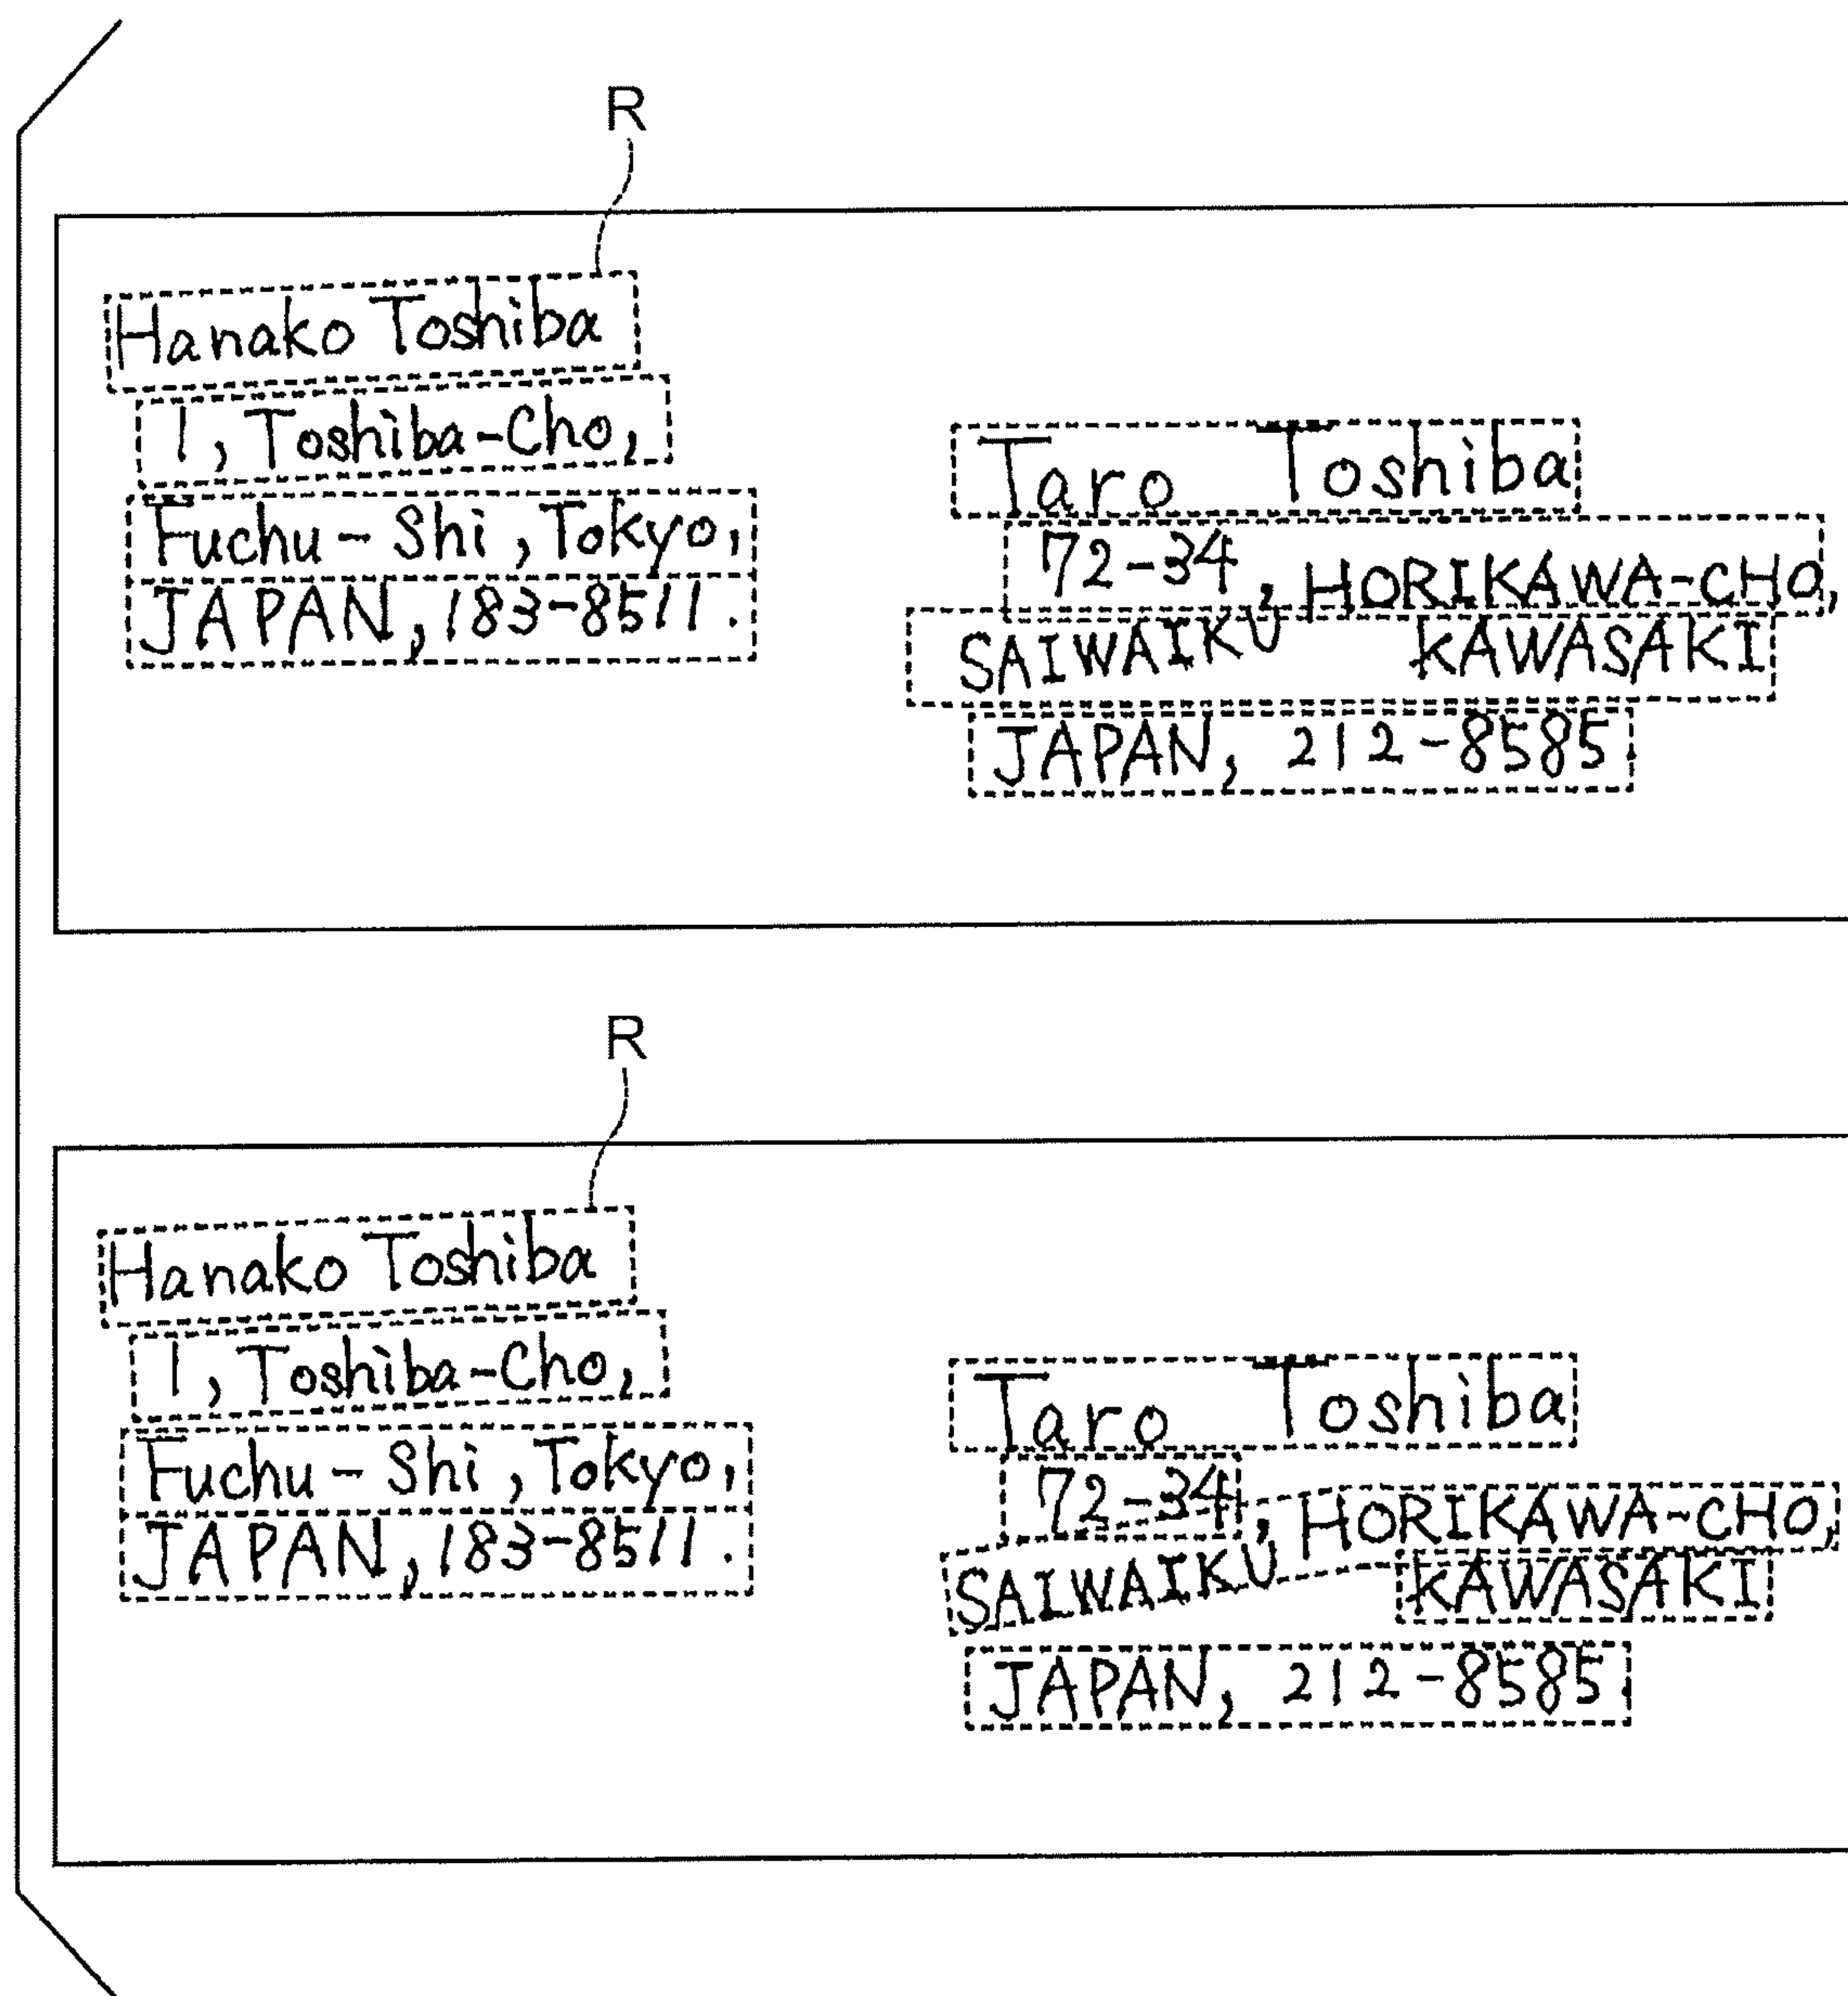 R
Hanako Toshiba
1, Toshiba-Cho,
Fuchu-Shi, Tokyo,
JAPAN, 183-8511.
Taro Toshiba
72-34, HORIKAWA-CHO,
SAIWAIKU KAWASAKI
JAPAN, 212-8585.
R
Hanako Toshiba
1, Toshiba-Cho,
Fuchu-Shi, Tokyo,
JAPAN, 183-8511.
Taro Toshiba
72-34, HORIKAWA-CHO,
SAIWAIKU KAWASAKI
JAPAN, 212-8585.